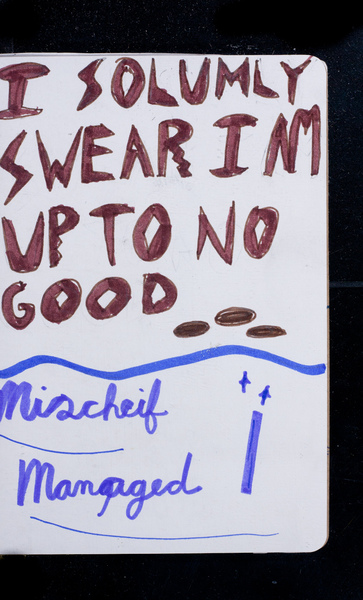 I SOLUMLY
SWEAR I AM
UP TO NO
GOOD
Mischeif
Managed